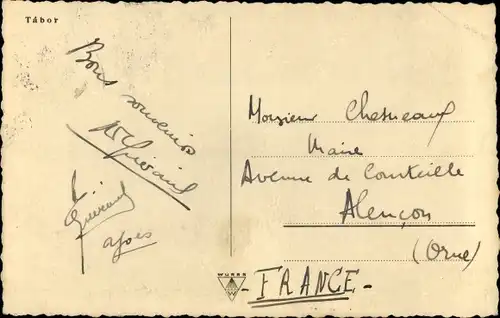 Tábor
Bons souvenirs
Monsieur Chesneaux
Maire
Avenue de Courteille
Alençon
(Orne)
WURBS
- FRANCE -